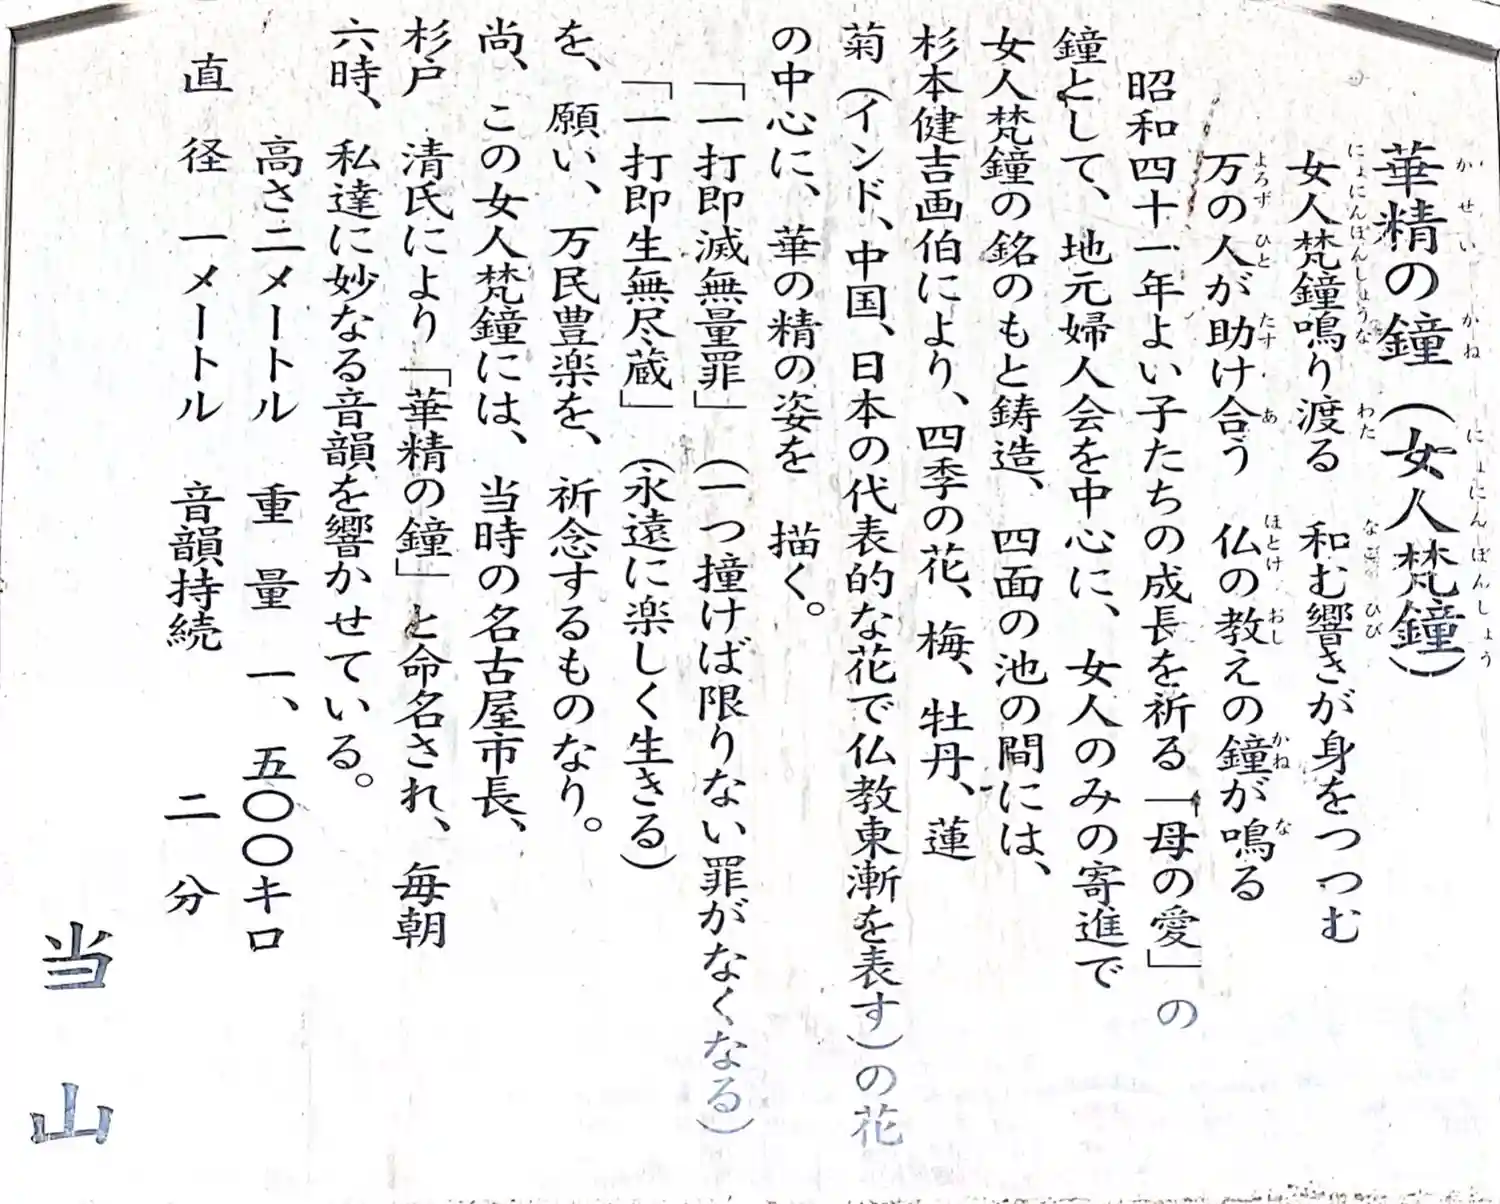 華精の鐘（女人梵鐘）
かせい　かね　にょにんぼんしょう
女人梵鐘鳴り渡る　和む響きが身をつつむ
にょにんぼんしょうな　わた　なご　ひび
万の人が助け合う　仏の教えの鐘が鳴る
よろず　ひと　たす　あ　ほとけ　おし　かね　な
昭和四十一年よい子たちの成長を祈る「母の愛」の
鐘として、地元婦人会を中心に、女人のみの寄進で
女人梵鐘の銘のもと鋳造、四面の池の間には、
杉本健吉画伯により、四季の花、梅、牡丹、蓮
菊（インド、中国、日本の代表的な花で仏教東漸を表す）の花
の中心に、華の精の姿を　描く。
「一打即滅無量罪」（一つ撞けば限りない罪がなくなる）
「一打即生無尽蔵」（永遠に楽しく生きる）
を、願い、万民豊楽を、祈念するものなり。
尚、この女人梵鐘には、当時の名古屋市長、
杉戸　清氏により「華精の鐘」と命名され、毎朝
六時、私達に妙なる音韻を響かせている。
高さ二メートル　重　量　一、五〇〇キロ
直　径　一メートル　音韻持続　二　分
当　山